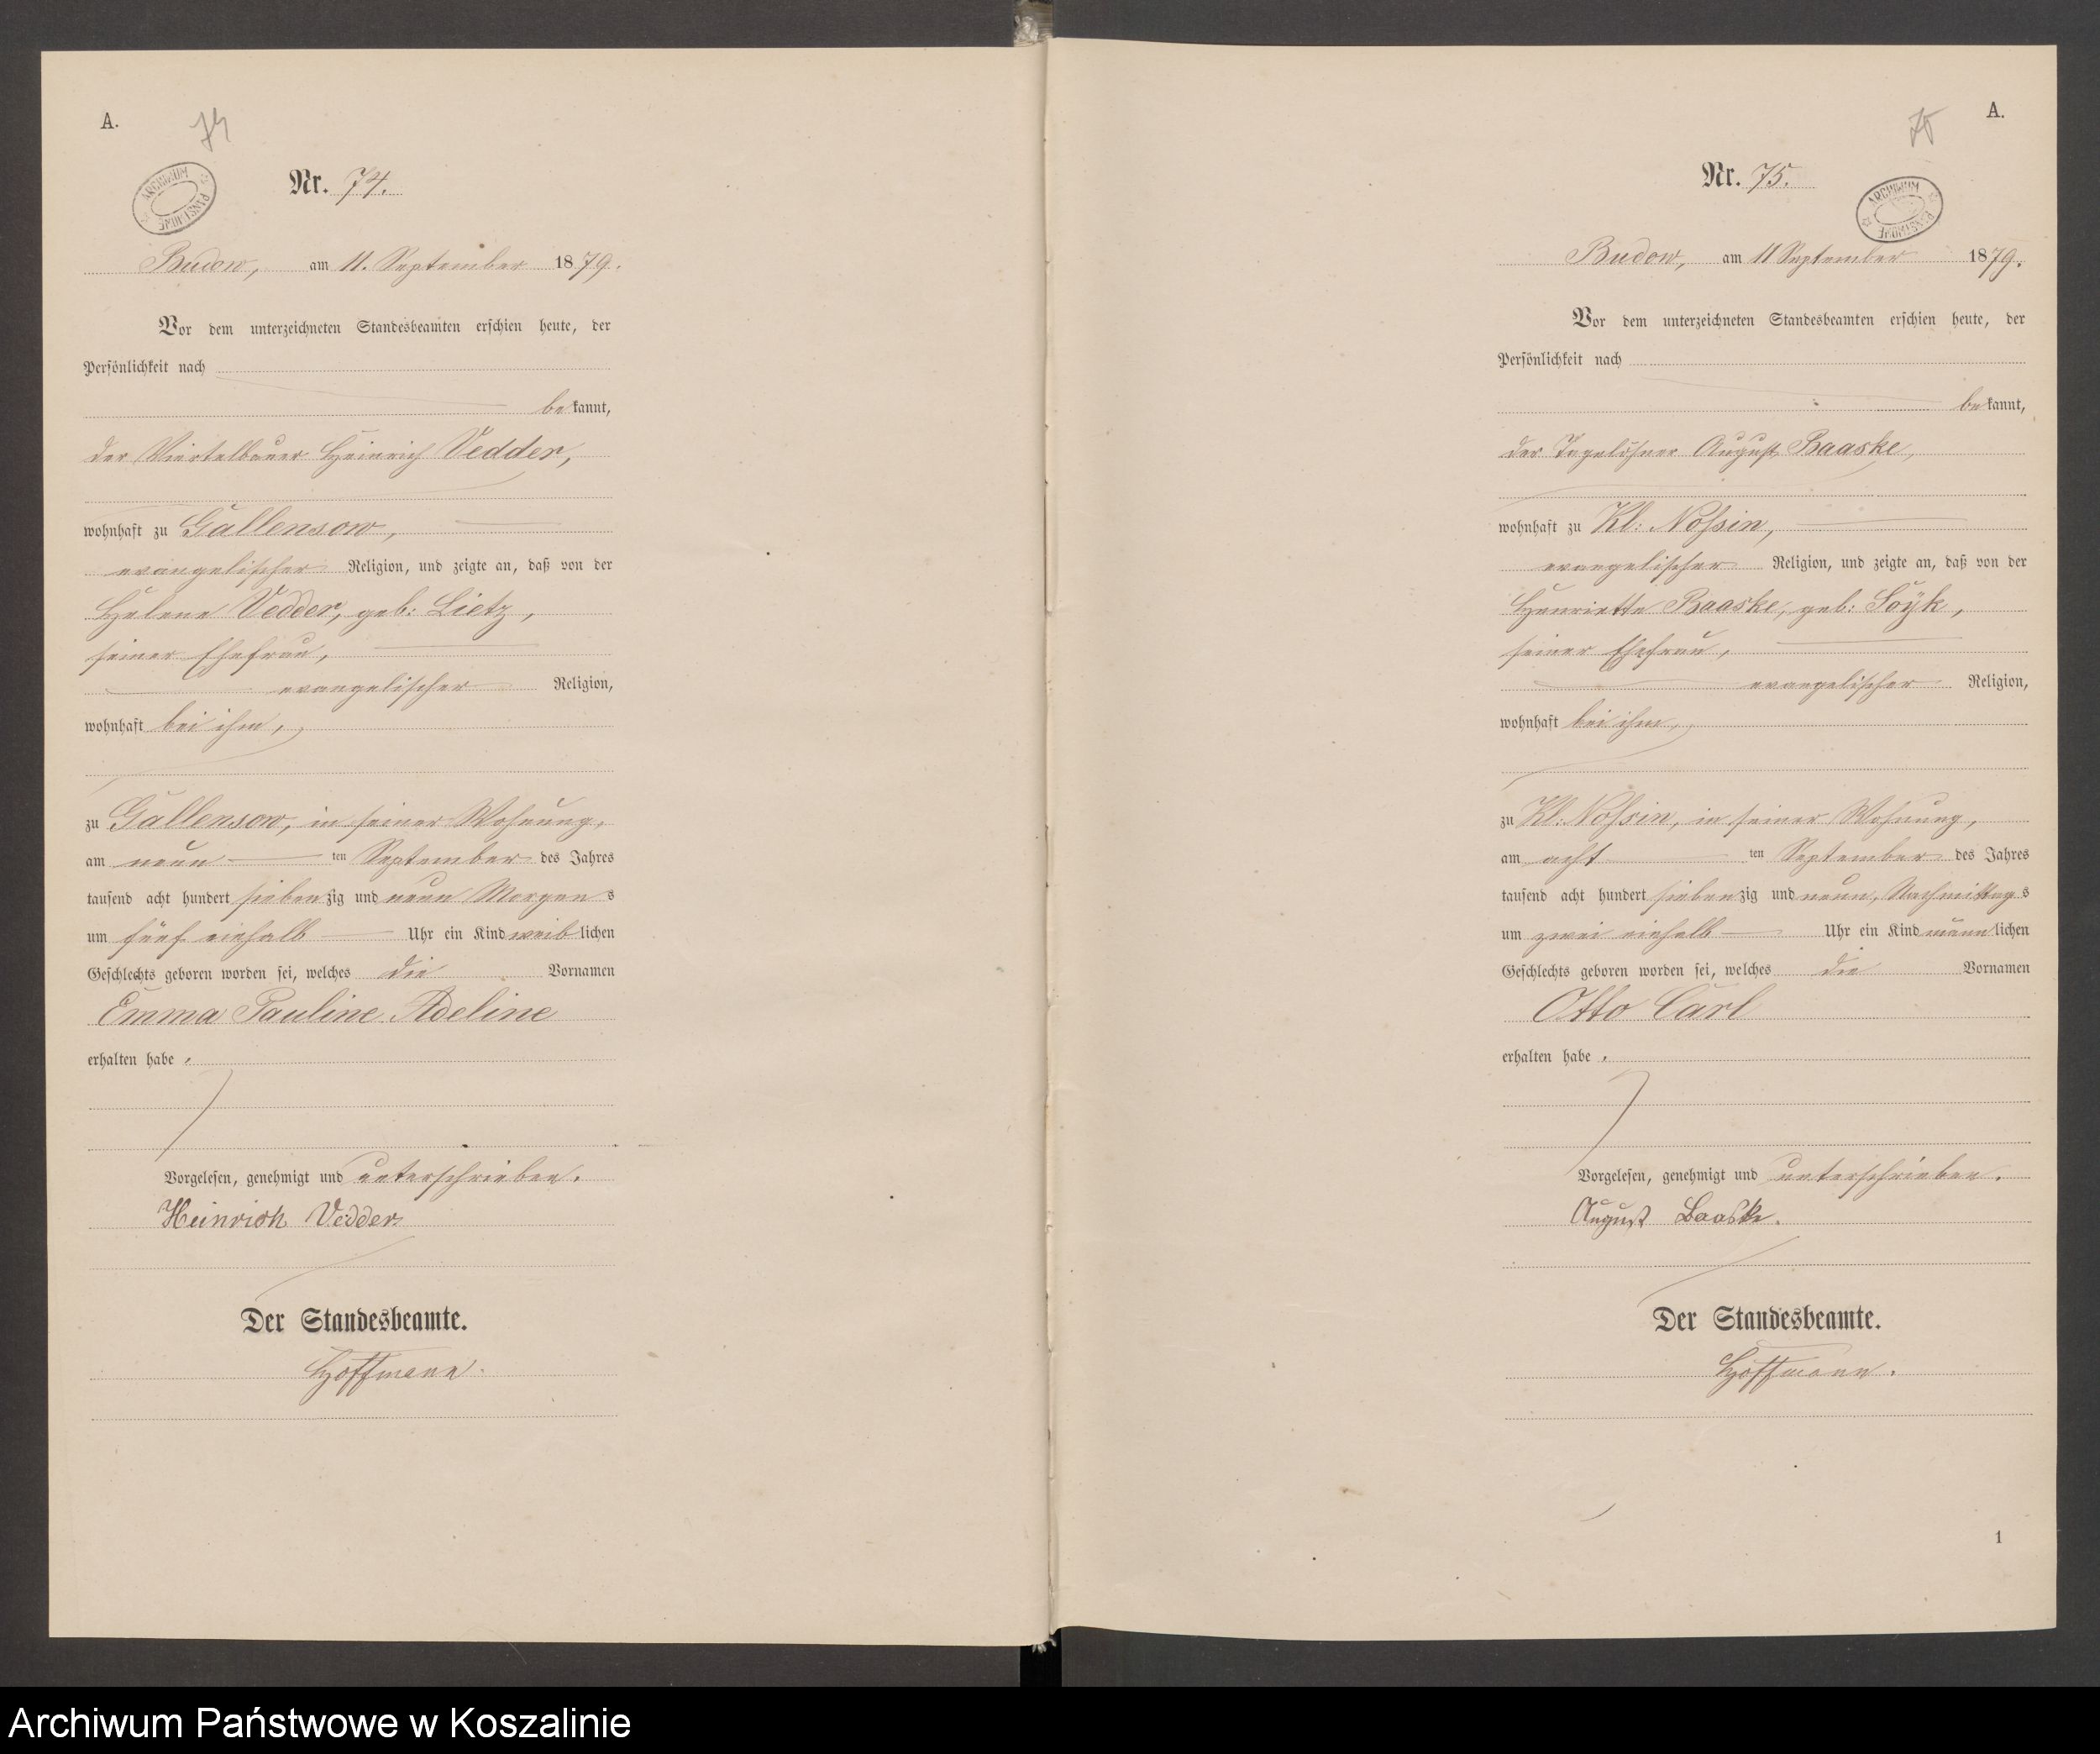 A.
74
Nr. 74.
ARCHIWUM PAŃSTWOWE
Budow, am 11. September 1879.
Vor dem unterzeichneten Standesbeamten erschien heute, der
Persönlichkeit nach
bekannt,
der Viertelbauer Heinrich Vedder,
wohnhaft zu Gallensow,
evangelischer Religion, und zeigte an, daß von der
Helene Vedder, geb: Lietz,
seiner Ehefrau,
evangelischer Religion,
wohnhaft bei ihm,
zu Gallensow, in seiner Wohnung,
am neun ten September des Jahres
tausend acht hundert siebenzig und neun Morgens
um fünf einhalb Uhr ein Kind weiblichen
Geschlechts geboren worden sei, welches die Vornamen
Emma Pauline Adeline
erhalten habe.
Vorgelesen, genehmigt und unterschrieben.
Heinrich Vedder
Der Standesbeamte.
Hoffmann.
A.
75
Nr. 75.
ARCHIWUM PAŃSTWOWE
Budow, am 11 September 1879.
Vor dem unterzeichneten Standesbeamten erschien heute, der
Persönlichkeit nach
bekannt,
der Tagelöhner August Baaske,
wohnhaft zu Kl: Nossin,
evangelischer Religion, und zeigte an, daß von der
Henriette Baaske, geb: Soyk,
seiner Ehefrau,
evangelischer Religion,
wohnhaft bei ihm,
zu Kl: Nossin, in seiner Wohnung,
am acht ten September des Jahres
tausend acht hundert siebenzig und neun, Nachmittags
um zwei einhalb Uhr ein Kind männlichen
Geschlechts geboren worden sei, welches die Vornamen
Otto Carl
erhalten habe.
Vorgelesen, genehmigt und unterschrieben.
August Baaske.
Der Standesbeamte.
Hoffmann.
1
Archiwum Państwowe w Koszalinie